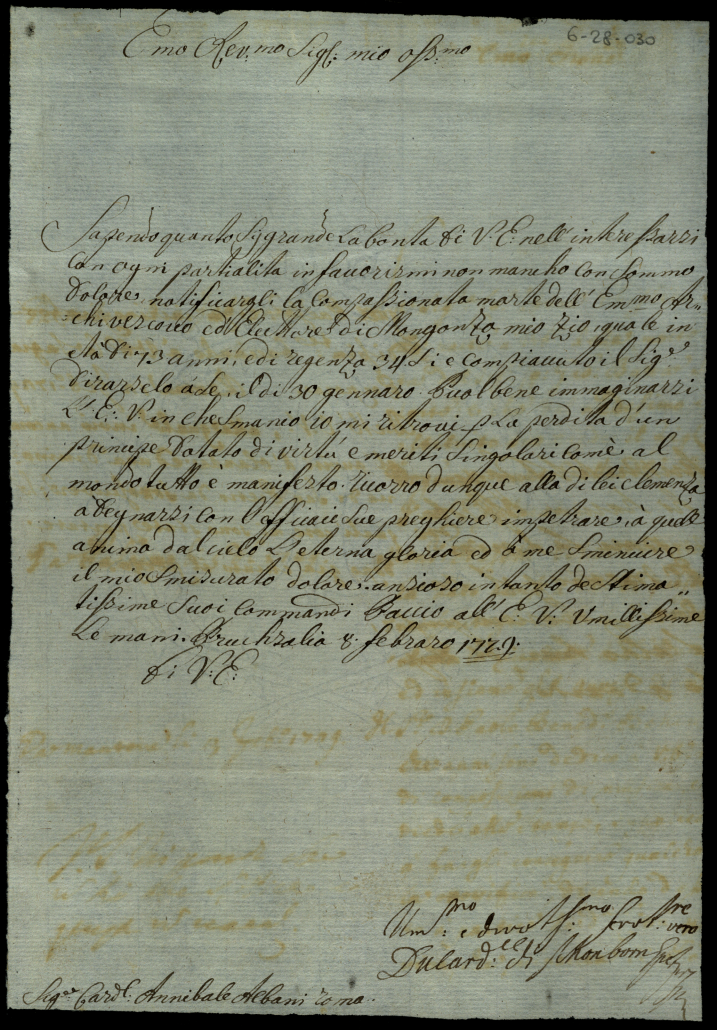 6-28-030
Emo Rev:mo Sig:r mio oss:mo
Sapendo quanto sy grande La bonta di V: E: nell' interessarsi
con ogni partialita in favorirmi non mancho con sommo
dolore notificargli la Compassionata morte dell' Em:mo Ar-
-chivescouo ed Elettore di Mongonza mio zio, quale in
età di 73 anni, e di regenza 34 si e compiaciuto il Sig:r
tirarselo a se, il di 30 gennaro. Puol bene immaginarsi
L' E: V. in che smanio io mi ritroui p La perdita d'un
principe dotato di virtú e meriti singolari comè al
mondo tutto è manifesto. ricorro dunque alla di lei clemenza
à degnarsi con l'efficaci sue preghiere impetrare, à quell'
anima dal cielo L' eterna gloria ed à me sminuire
il mio smisurato dolore: ansioso intanto de stima
tissime suoi Commandi Baccio all' E: V: Vmillissime
Le mani. Bruchsalia 8. febraro 1729.
di V: E:
Um:mo e diuotiss:mo seruit:re vero
D. Card:le di Schonborn
Sig:re Card:l: Annibale Albani roma.